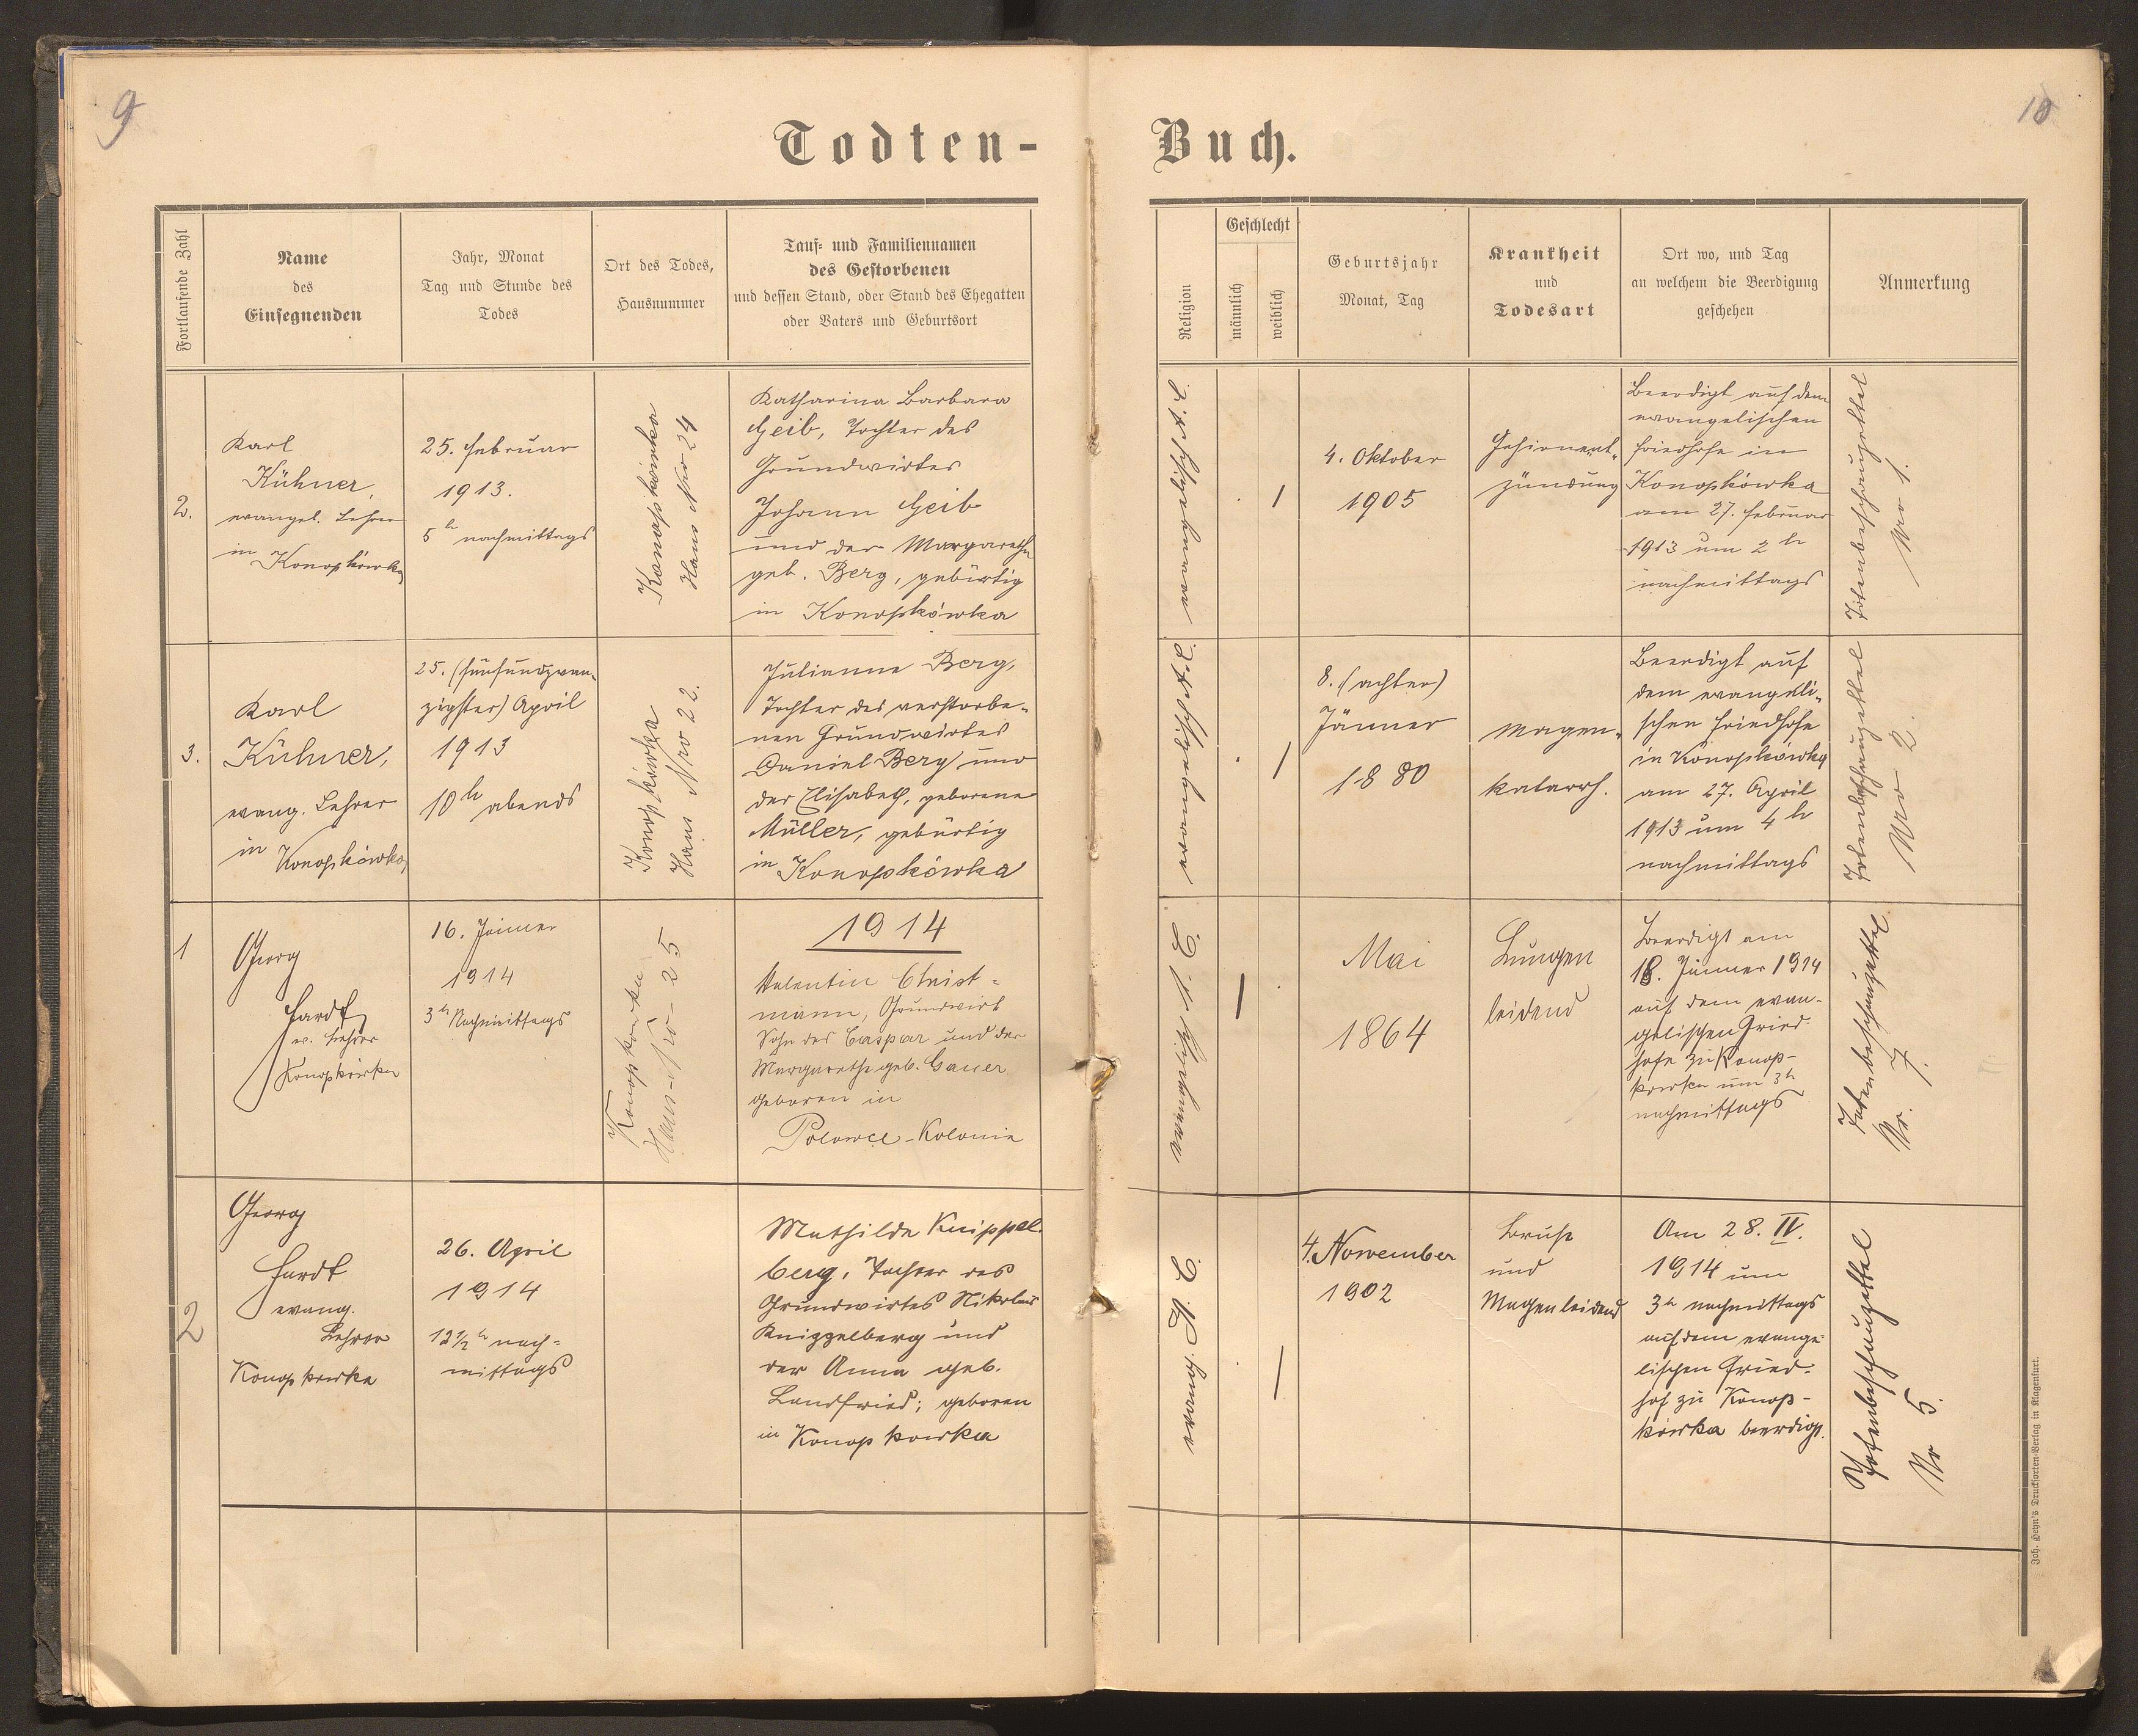 9
10
Todten-
Buch.
Fortlaufende Zahl
Name
des
Einsegnenden
Jahr, Monat
Tag und Stunde des
Todes
Ort des Todes,
Hausnummer
Tauf- und Familiennamen
des Gestorbenen
und dessen Stand, oder Stand des Ehegatten
oder Vaters und Geburtsort
Religion
Geschlecht
männlich
weiblich
Geburtsjahr
Monat, Tag
Krankheit
und
Todesart
Ort wo, und Tag
an welchem die Beerdigung
geschehen
Anmerkung
2.
Karl
Kühner,
evangel. Lehrer
in
Konopkówka
25. Februar
1913.
5 h nachmittags
Konopkówka
Haus Nro 24
Katharina Barbara
Geib, Tochter des
Grundwirtes
Johann Geib
und der Margaretha
geb. Berg, gebürtig
in Konopkówka
evangelisch A. C.
1
4. Oktober
1905
Gehirnent-
zündung
Beerdigt auf dem
evangelischen
Friedhofe in
Konopkówka
am 27. Februar
1913 um 2 h
nachmittags
Totenbeschauzettel
Nro 1.
3.
Karl
Kühner,
evang. Lehrer
in
Konopkówka
25. (fünfundzwan-
zigster) April
1913
10 h abends
Konopkówka
Haus Nro 22.
Julianne Berg,
Tochter des verstorbe-
nen Grundwirtes
Daniel Berg und
der Elisabeth, geborene
Müller, gebürtig
in Konopkówka
evangelisch A. C.
1
8. (achter)
Jänner
1880
Magen-
katarrh.
Beerdigt auf
dem evangeli-
schen Friedhofe
in Konopkówka
am 27. April
1913 um 4 h
nachmittags
Totenbeschauzettel
Nro 2.
1
Georg
Hardt
ev. Lehrer
Konopkówka
16. Jänner
1914
3 h Nachmittags
Konopkówka
Haus-Nro- 25
1914
Valentin Christ-
mann, Grundwirt
Sohn des Caspar und der
Margarethe geb. Gauer
geboren in
Polowce-Kolonie
evangelisch A. C.
1
Mai
1864
Lungen
leidend
Beerdigt am
18. Jänner 1914
auf dem evan-
gelischen Fried-
hofe zu Konop-
kówka um 3 h
nachmittags
Totenbeschauzettel
Nr. 7.
2
Georg
Hardt
evang.
Lehrer
Konopkówka
26. April
1914
12 1/2 h nach-
mittags
Mathilde Knippel-
berg, Tochter des
Grundwirtes Nikolaus
Knippelberg und
der Anna geb.
Landfried; geboren
in Konopkówka
evang. A. C.
1
4. November
1902
Brust
und
Magenleidend
Am 28. IV.
1914 um
3 h nachmittags
auf dem evange-
lischen Fried-
hof zu Konop-
kówka beerdigt.
Totenbeschauzettel
Nr 5.
Joh. Heyn's Drucksorten-Verlag in Klagenfurt.